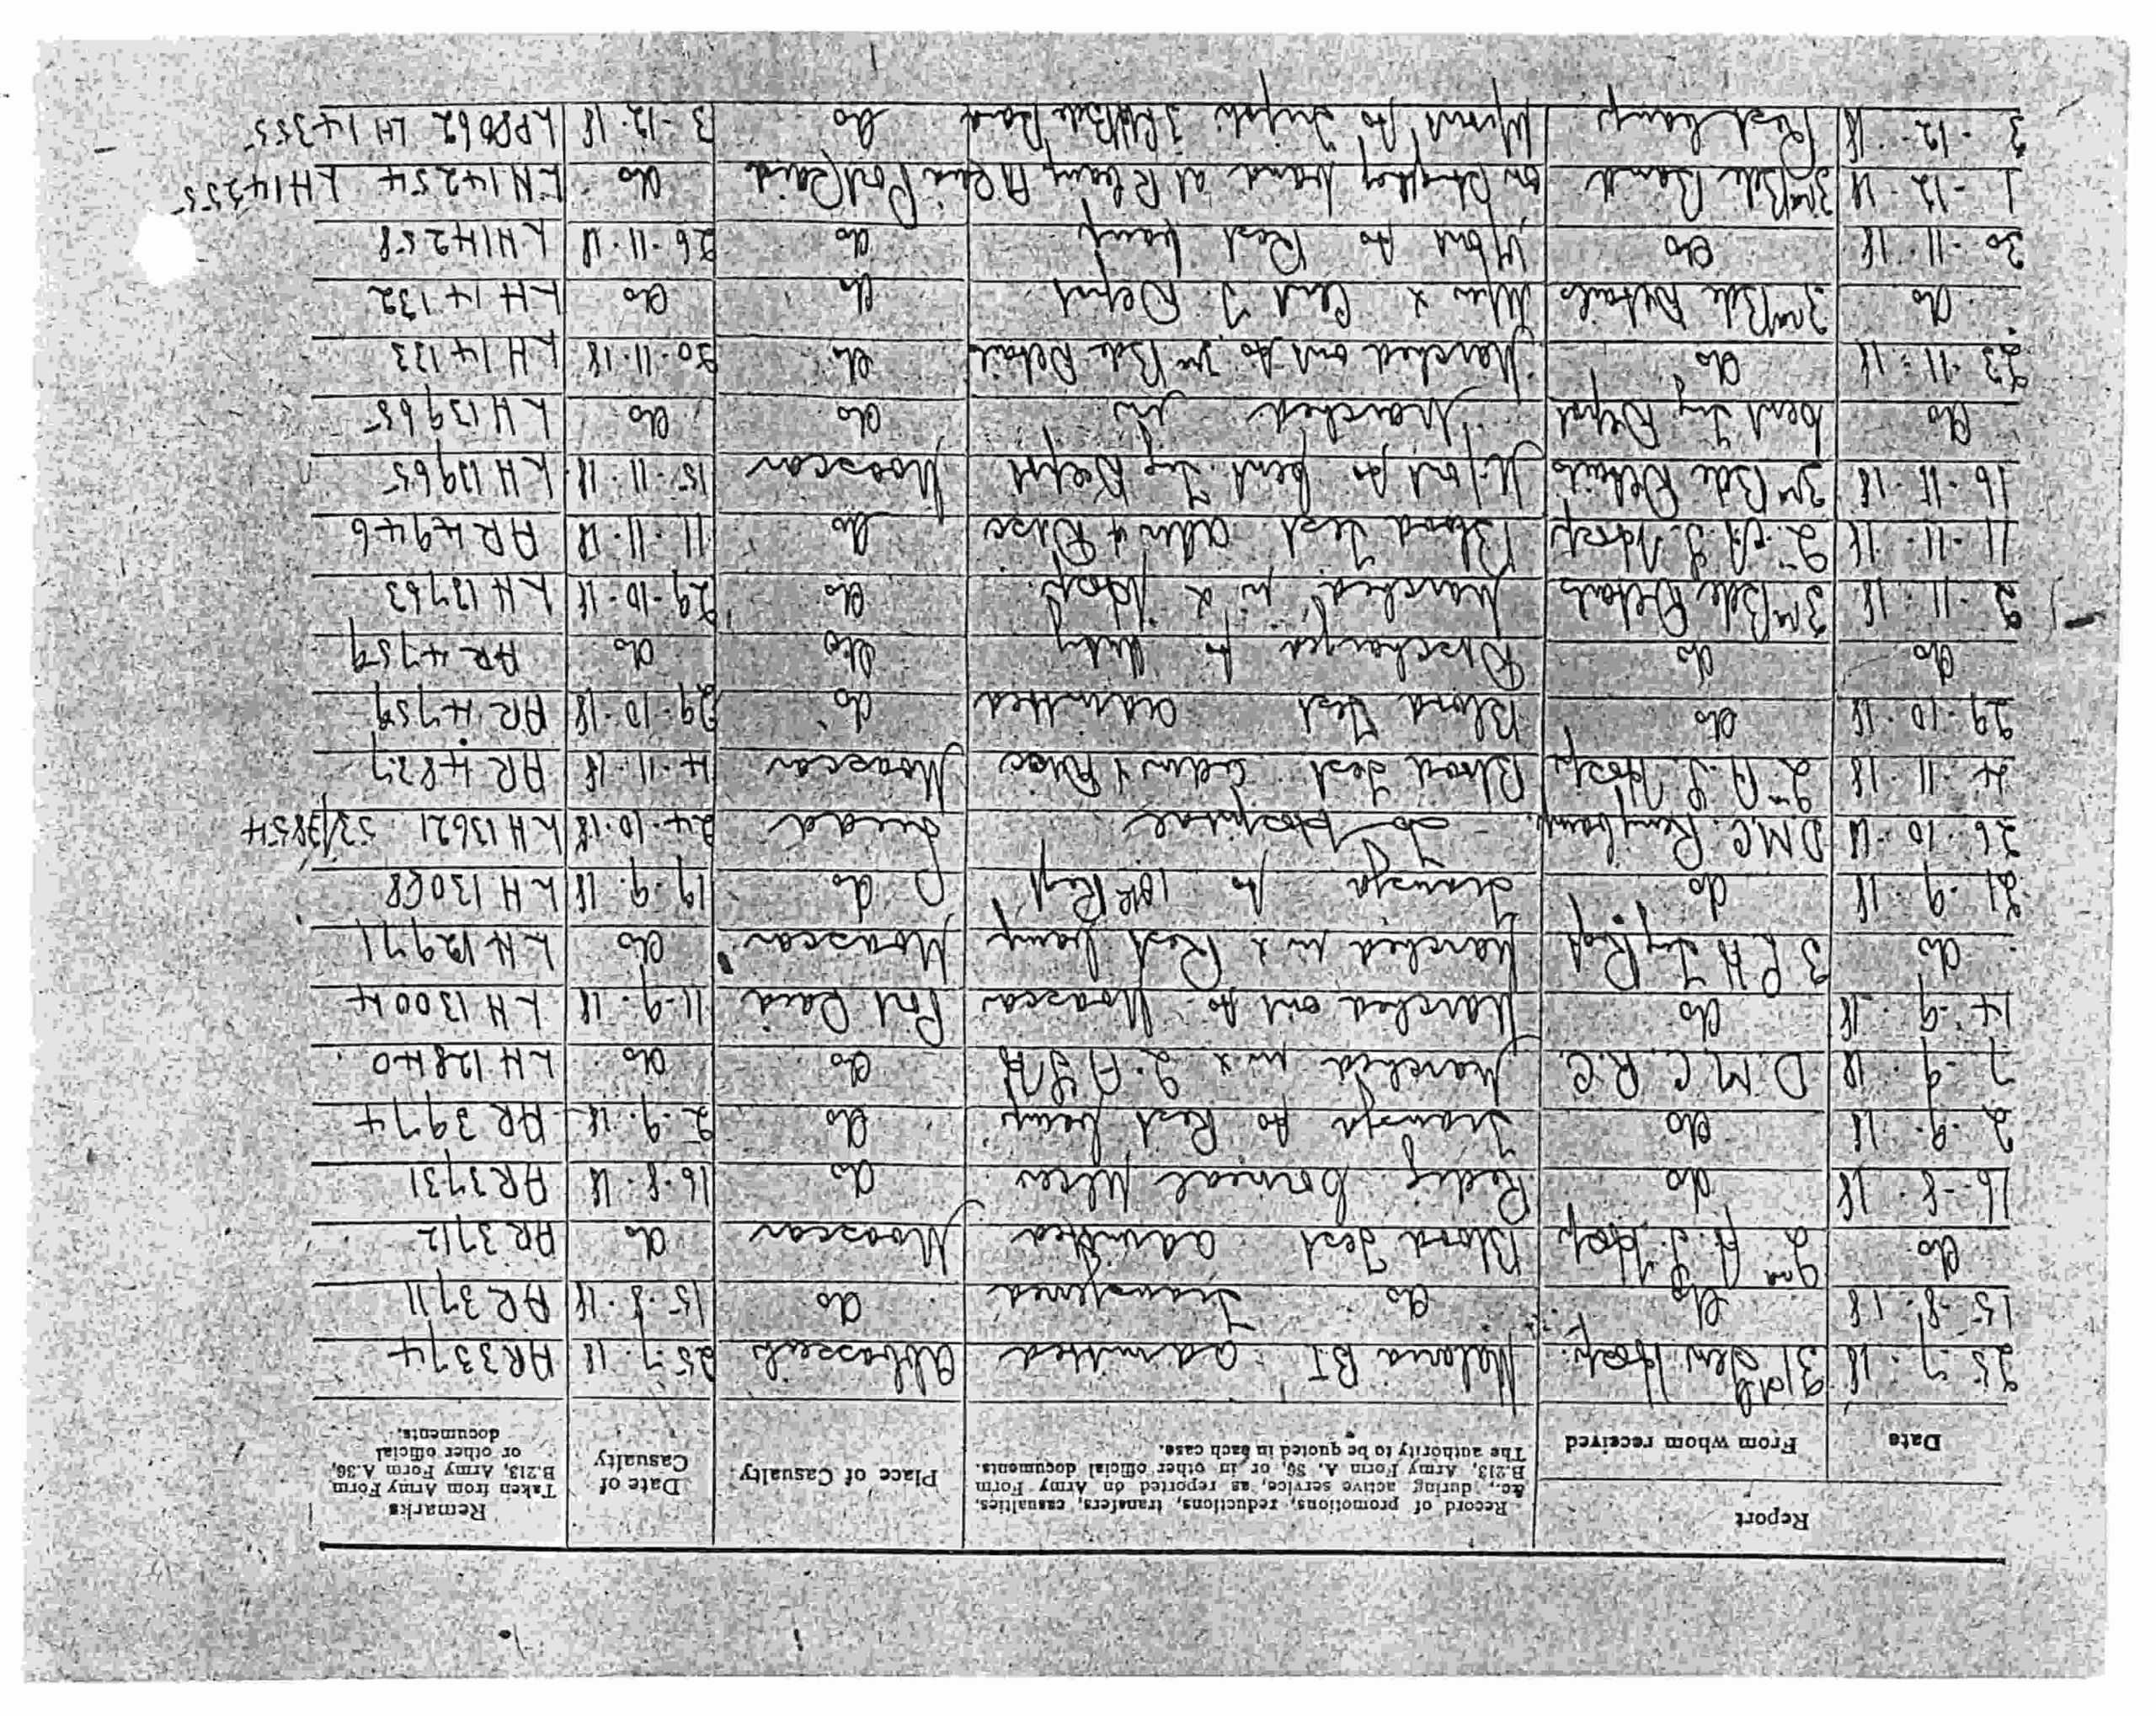 Report
Record of promotions, reductions, transfers, casualties, &c., during active service, as reported on Army Form B.213, Army Form A. 36, or in other official documents. The authority to be quoted in each case.
Place of Casualty
Date of Casualty
Remarks
Taken from Army Form B.213, Army Form A.36, or other official documents.
Date From whom received
25-7-18 31st Gen Hosp. Malaria BT admitted Abbassieh 25.7.18 AR3374
15-8-18 do do Transferred do 15.8.18 AR3711
do 2nd A.S. Hosp Blood Test admitted Moascar do AR3712
16-8-18 do Corneal Ulcer do 16.8.18 AR3731
2-9-18 do Transfr to Rest Camp do 2.9.18 AR3974
7-9-18 D.M.C. R.C. Marched in x 2 A S H do do LH12840
14-9-18 do Marched out to Moascar Port Said 11.9.18 LH13004
do 3 L H Trg Regt Marched in x Rest Camp Moascar do LH12971
21-9-18 do Transfr to 10th Regt do 19.9.18 LH13068
26-10-18 D.M.C. Rest Camp To Hospital 24.10.18 LH13621
4-11-18 2nd A.S. Hosp Blood Test Adm & Disc Moascar 4.11.18 AR4827
29-10-18 do Blood Test admitted do 29.10.18 AR4759
do do Discharged to duty do do AR4759
2-11-18 3rd Bde Details Marched in x Hosp. do 29.10.18 LH13763
11-11-18 2nd A.S. Hosp Blood Test Adm & Disc do 11.11.18 AR4946
16-11-18 3rd Bde Details M/out to Cent Trg Depot Moascar 15.11.18 LH13965
do Cent Trg Depot Marched in do do LH13965
23-11-18 do Marched out to 3rd Bde Details do 20.11.18 LH14133
do 3rd Bde Details M/in x Cent T Depot do do LH14132
30-11-18 do M/out to Rest Camp do 26.11.18 LH14258
1-12-18 3rd Bde Port Said do LH14254 LH14255
3-12-18 Rest Camp M/out to do 3-12-18 LH14355